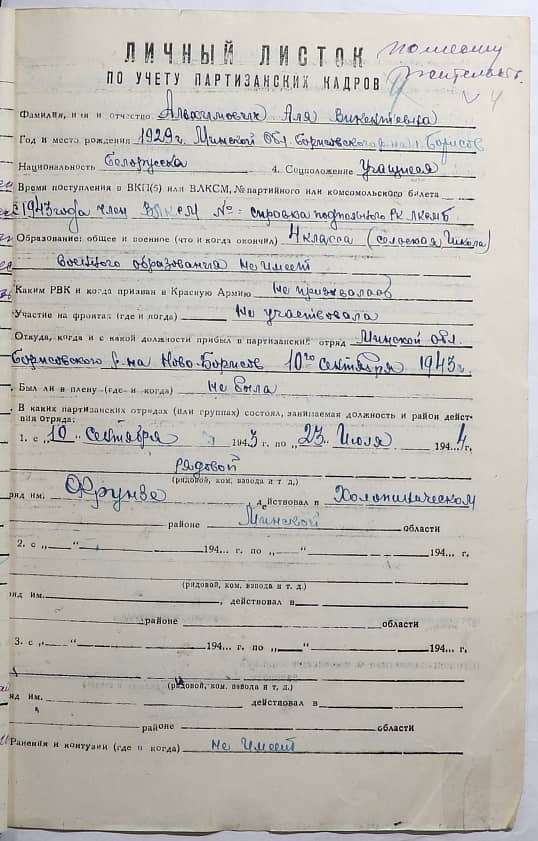 ЛИЧНЫЙ ЛИСТОК
ПО УЧЕТУ ПАРТИЗАНСКИХ КАДРОВ
Фамилия, имя и отчество Аля Викентьевна
Год и место рождения 1929 г. Минской Обл. Борисовского р-на г. Борисов
Национальность Белорусска 4. Соцположение Учащаяся
Время поступления в ВКП(б) или ВЛКСМ, № партийного или комсомольского билета
с 1943 года член ВЛКСМ №: справка подпольного РК ЛКСМБ
Образование: общее и военное (что и когда окончил) 4 класса (сельская школа)
военного образования не имеет
Каким РВК и когда призван в Красную Армию не призвалась
Участие на фронтах (где и когда) Не участвовала
Откуда, когда и с какой должности прибыл в партизанский отряд Минской обл.
Борисовского р-на Ново-Борисов 10го сентября 1943 г.
Был ли в плену (где и когда) не была
В каких партизанских отрядах (или группах) состоял, занимаемая должность и район дейст-
вия отряда:
1. с „10" сентября 1943 г. по „23" Июля 1944 г.
рядовой
(рядовой, ком. взвода и т. д.)
ряд им. Фрунзе действовал в Холопиническом
районе Минской области
2. с „ " 194... г. по „ " 194... г.
(рядовой, ком. взвода и т. д.)
яд им. , действовал в
районе области
3. с „ " 194... г. по „ " 194... г.
(рядовой, ком. взвода и т. д.)
яд им. действовал в
районе области
Ранения и контузии (где и когда) не имеет